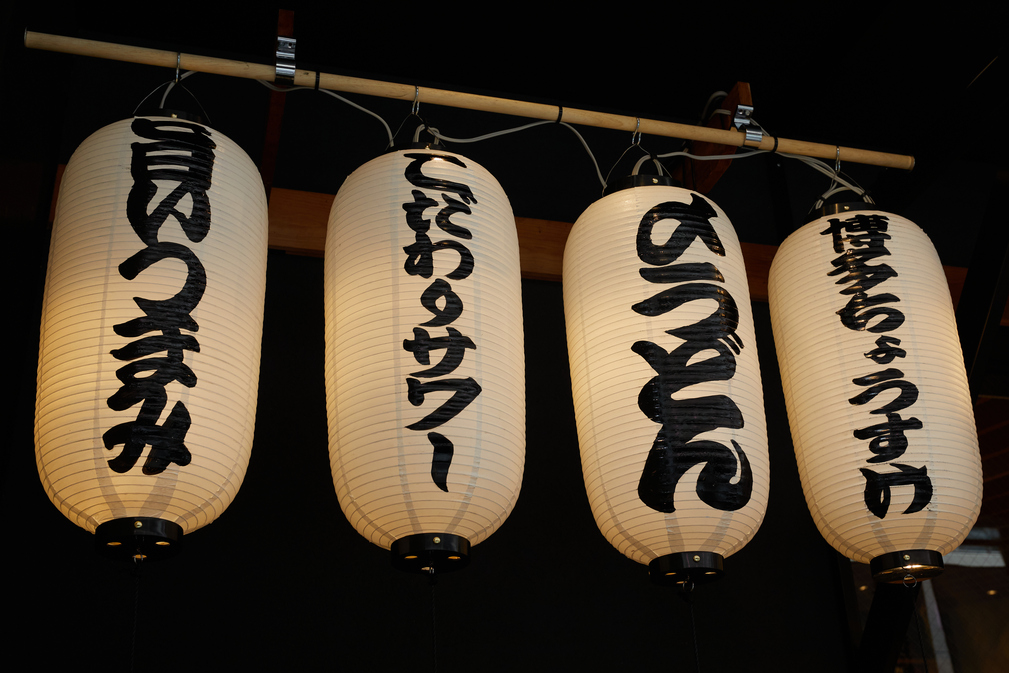 旨いつまみ
こだわりサワー
〆うどん
博多ちょうすけ